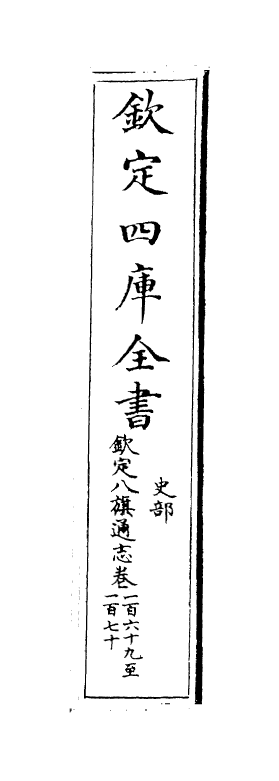 欽定四庫全書
史部
欽定八旗通志卷一百六十九至
一百七十